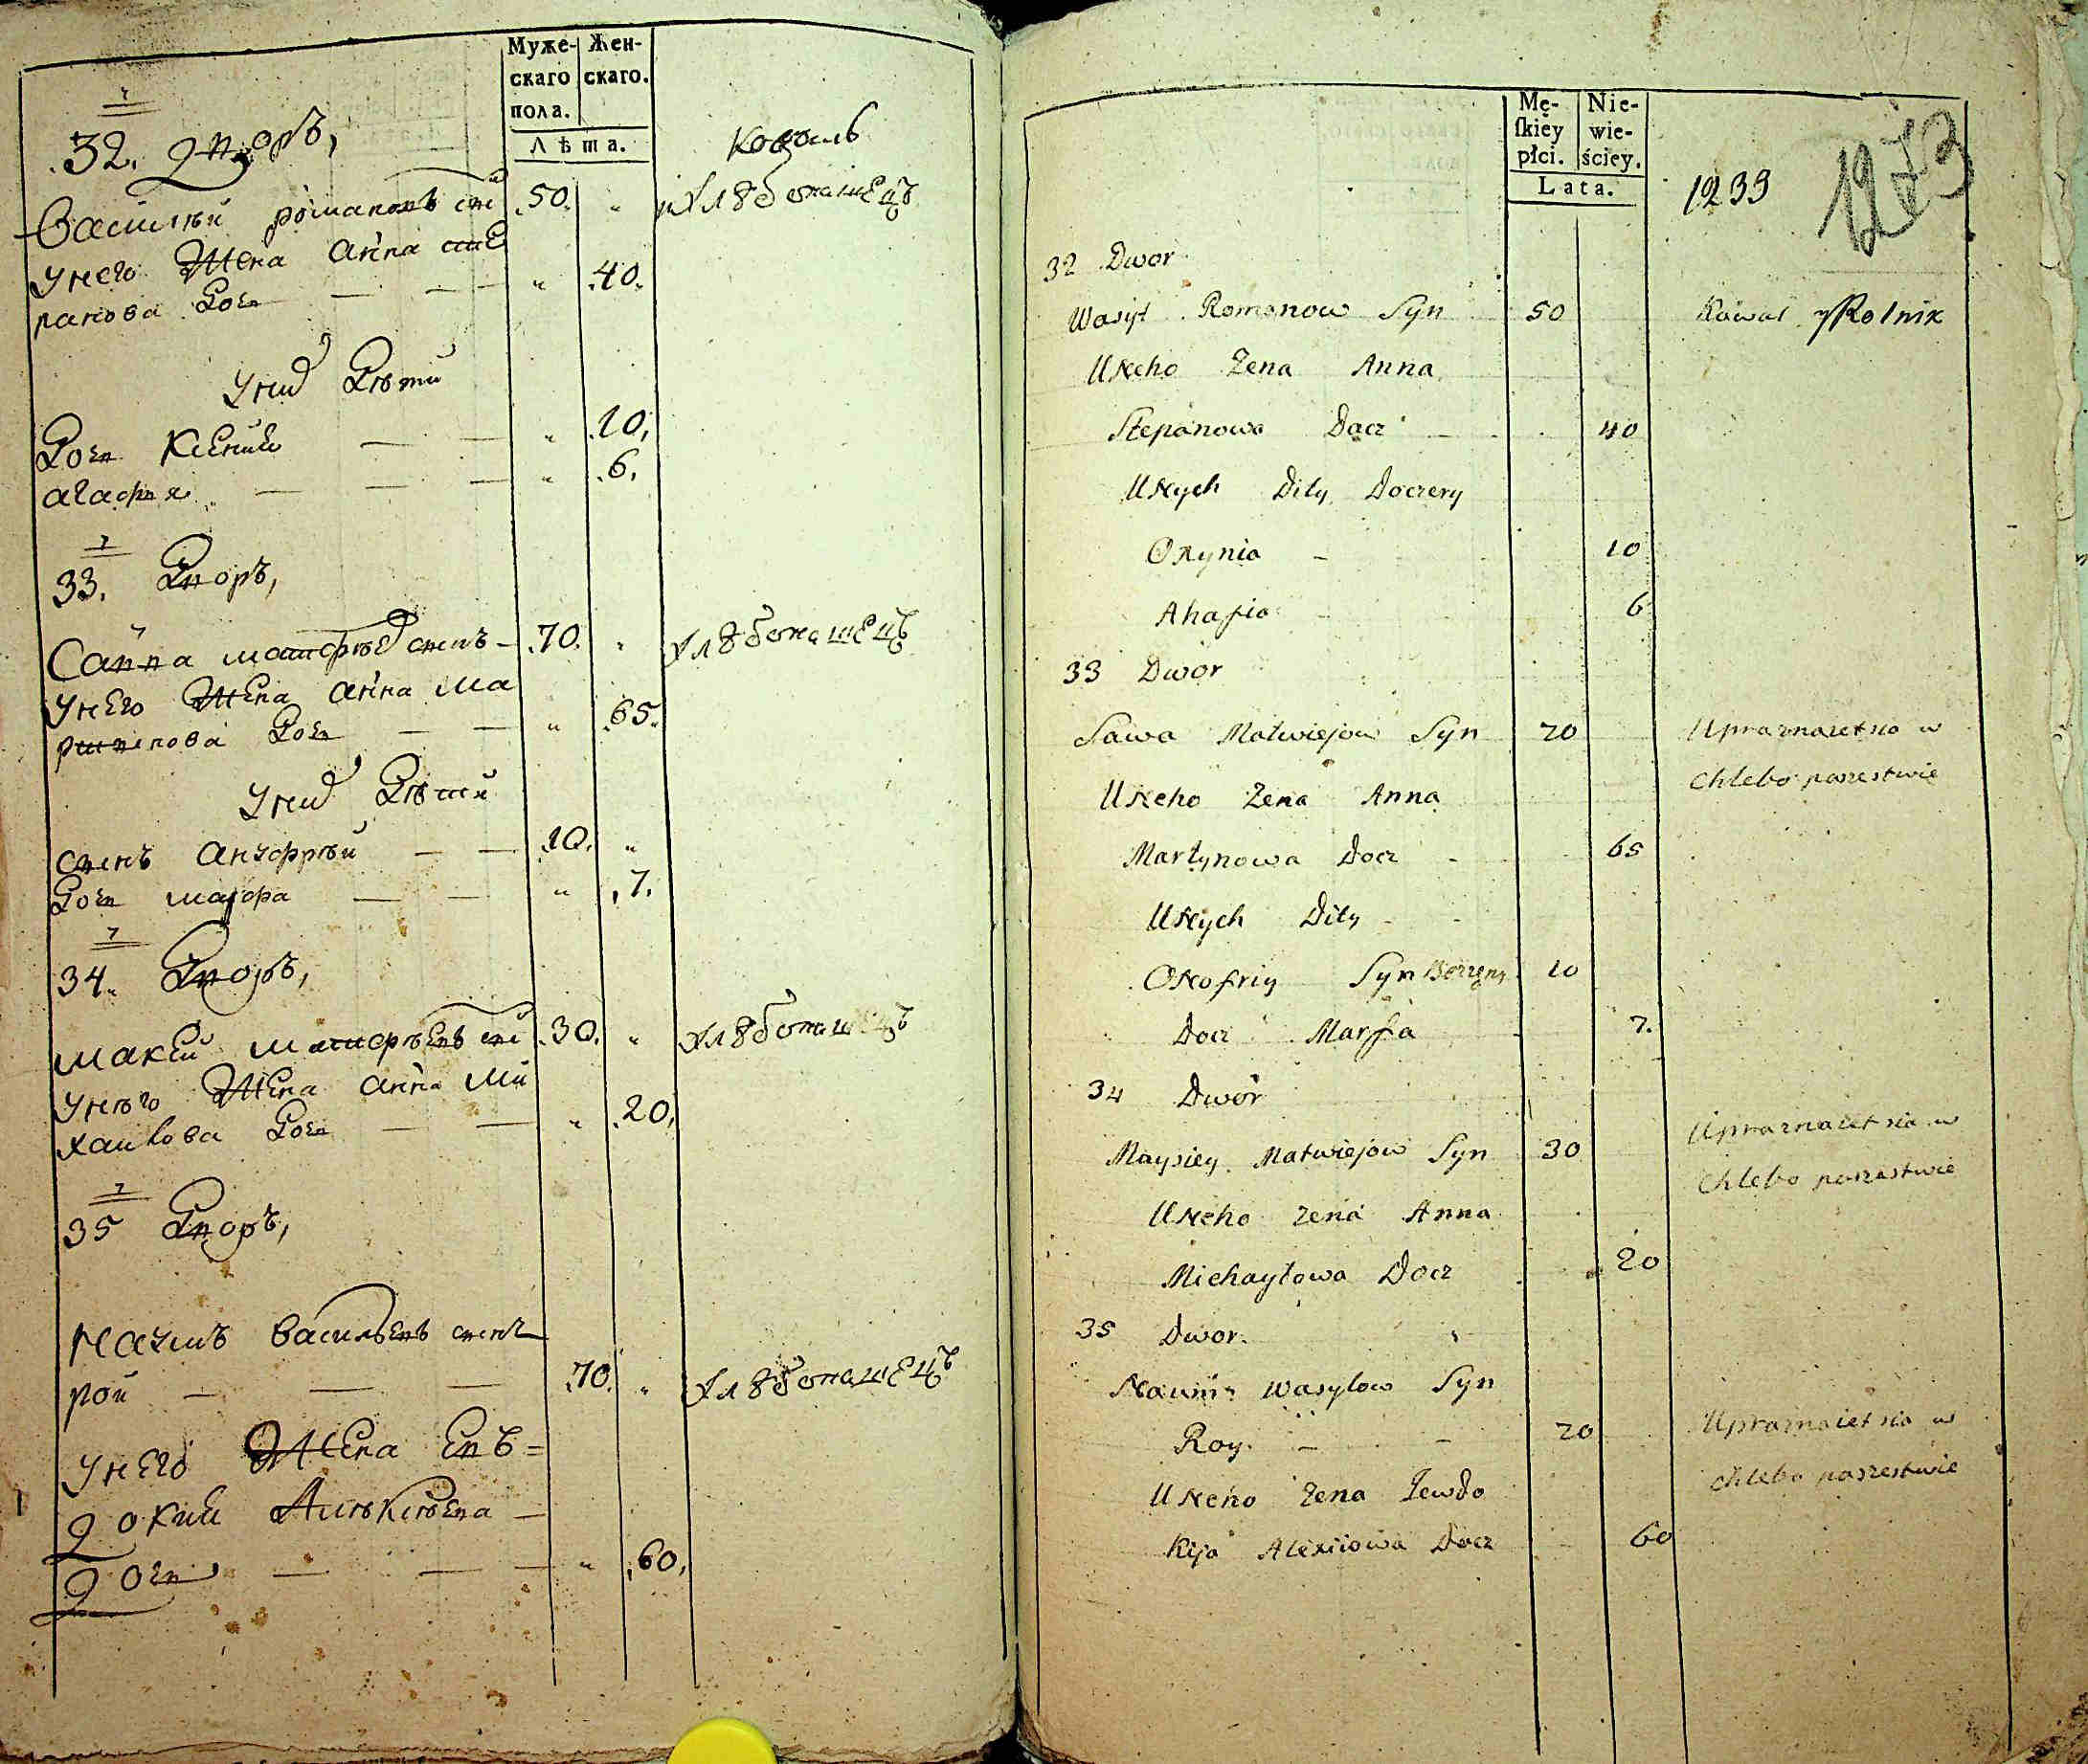 Муже-
скаго
пола.
Жен-
скаго.
Лѣта.
32. Дворъ,
Коваль
Василий романовъ сн̃ъ 50. „ и хлѣбопашецъ
У него Жена Анна сте
панова Доч — — — „ 40.
У них Дѣти
Доч Ксения — — „ 10,
агафия — — — „ 6.
33. Дворъ,
Савва матфѣев снъ — 70. „ хлѣбопашецъ
У него Жена Анна Ма
ртинова Доч — — „ 65.
У них Дѣти
снъ ануфрѣй — — 10. „
Доч марфа — — „ 7.
34. Дворъ,
Мак̃ей Матфѣевъ сн̃ъ 30. „ хлѣбопашецъ
У него Жена Анна Ми
хайлова Доч — — „ 20,
35 Дворъ,
Наумъ Васильевъ снъ
рой — — — 70. „ хлѣбопашецъ
У него Жена Евъ=
докия Алѣксѣева —
Доч — — — „ 60,
Mę-
ſkiéy
płci.
Nie-
wie-
ściey.
Lata.
1239 1273
32 Dwor
Wasyl Romanow Syn 50 Kowal y Rolnik
U Neho Żena Anna
Stepanowa Docz 40
U Nych Dity Doczery
Oxynia – 10
Ahafia 6
33 Dwor
Sawa Matwiejow Syn 70 Uprażnaietsia w
chlebo paszestwie
U Neho Żena Anna
Martynowa Docz - 65
U Nych Dity -
Onofriy Syn 10
Docz Marfa 7.
34 Dwor
Maysiey Matwiejow Syn 30 Uprażnaietsia w
chlebo paszestwie
U Neho Żena Anna
Michayłowa Docz 20
35 Dwor.
Naum Wasylow Syn
Roy. – – 70 Uprażnaietsia w
chlebo paszestwie
U Neho Żena Jewdo
Kija Alexiiowa Docz 60